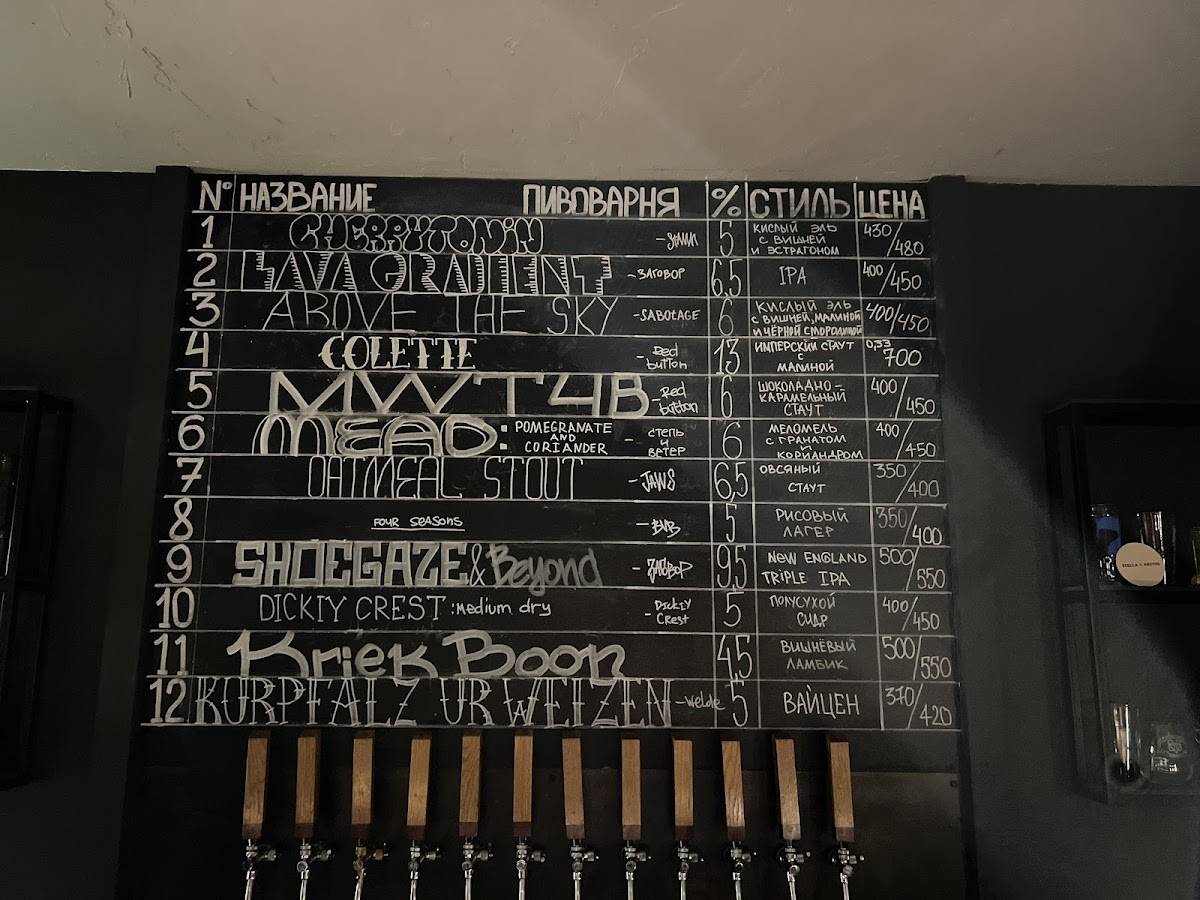 № НАЗВАНИЕ ПИВОВАРНЯ % СТИЛЬ ЦЕНА
1 CHERRYTONIN 5 КИСЛЫЙ ЭЛЬ С ВИШНЕЙ И ЭСТРАГОНОМ 430/480
2 LAVA GRADIENT - ЗАГОВОР 6,5 IPA 400/450
3 ABOVE THE SKY - SABOTAGE 6 КИСЛЫЙ ЭЛЬ С ВИШНЕЙ, МАЛИНОЙ И ЧЁРНОЙ СМОРОДИНОЙ 400/450
4 COLETTE - Red button 13 ИМПЕРСКИЙ СТАУТ С МАЛИНОЙ 0,33 700
5 MWT4B - Red button 6 ШОКОЛАДНО-КАРАМЕЛЬНЫЙ СТАУТ 400/450
6 MEAD: POMEGRANATE AND CORIANDER - СТЕПЬ И ВЕТЕР 6 МЕЛОМЕЛЬ С ГРАНАТОМ И КОРИАНДРОМ 400/450
7 OATMEAL STOUT - JAWS 6,5 ОВСЯНЫЙ СТАУТ 350/400
8 FOUR SEASONS 5 РИСОВЫЙ ЛАГЕР 350/400
9 SHOEGAZE & Beyond - ЗАГОВОР 9,5 NEW ENGLAND TRIPLE IPA 500/550
10 DICKIY CREST: Medium dry - DICKIY CREST 5 ПОЛУСУХОЙ СИДР 400/450
11 Kriek Boon 4,5 ВИШНЁВЫЙ ЛАМБИК 500/550
12 KURPFALZ URWEIZEN - Welde 5 ВАЙЦЕН 370/420